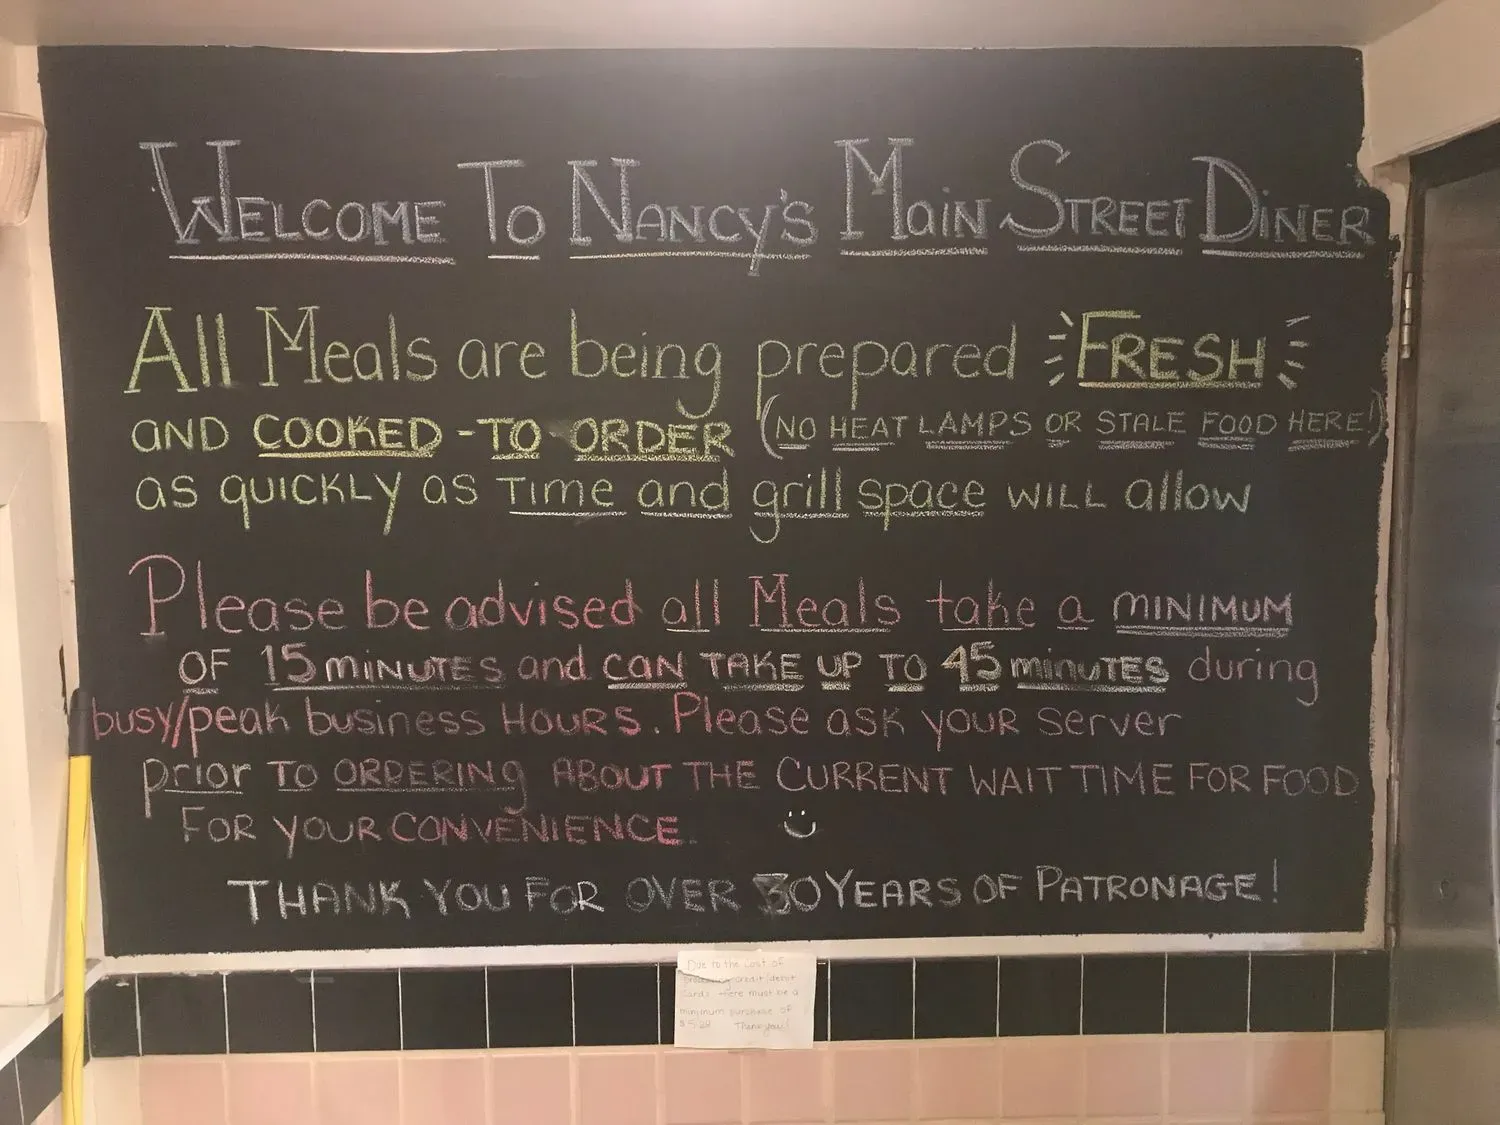 WELCOME TO NANCY'S MAIN STREET DINER
All Meals are being prepared FRESH
AND COOKED-TO ORDER (NO HEAT LAMPS OR STALE FOOD HERE!)
as QUICKLY as TIME and grill space WILL allow
Please be advised all Meals take a MINIMUM
OF 15 MINUTES and CAN TAKE UP TO 45 minutes during
busy/peak business HOURS. Please ask your server
prior TO ORDERING ABOUT THE CURRENT WAIT TIME FOR FOOD
FOR YOUR CONVENIENCE.
THANK YOU FOR OVER 30 YEARS OF PATRONAGE!
Due to the cost of
processing credit/debit
cards there must be a
minimum purchase of
Thank you!